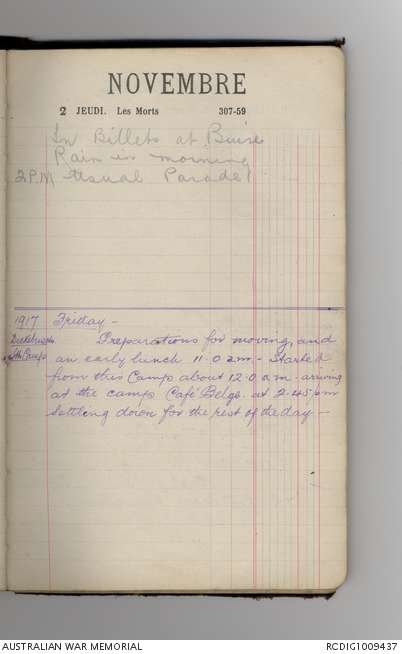 NOVEMBRE
2 JEUDI. Les Morts 307-59
In Billets at Buire
Rain in morning
2 P.M Usual Parade
1917 Friday -
Preparations for moving, and
Camp an early lunch 11.0 a.m. - Started
from this Camp about 12.0 a.m. arriving
at the camp Café Belge at 2.45 pm
Settling down for the rest of the day -
AUSTRALIAN WAR MEMORIAL RCDIG1009437